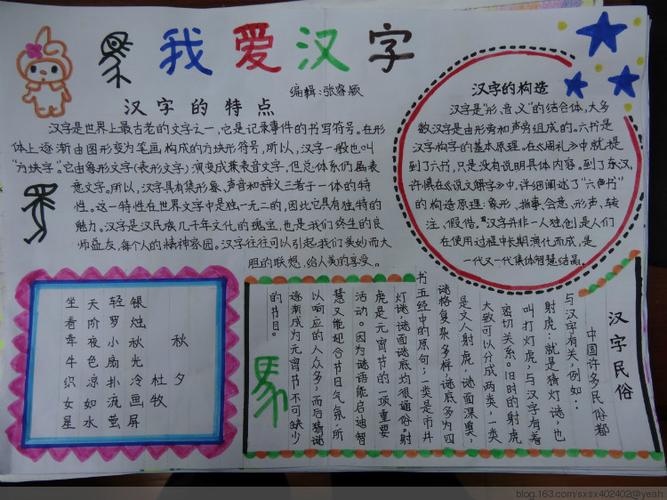 我爱汉字
编辑:张睿颖
汉字的特点
汉字是世界上最古老的文字之一,它是记录事件的书写符号。在形
体上逐渐由图形变为笔画构成的方块形符号。所以,汉字一般也叫
“方块字”。它由象形文字(表形文字)演变成兼表音文字,但总体系仍属表
意文字。所以,汉字具有集形象、声音和辞义三者于一体的特
性。这一特性在世界文字中是独一无二的,因此它具有独特的
魅力。汉字是汉民族几千年文化的瑰宝,也是我们终生的良
师益友,每个人的精神家园。汉字往往可以引起我们美妙而大
胆的联想,给人美的享受。
汉字的构造
汉字是“形、音、义”的结合体,大多
数汉字是由形旁和声旁组成的。六书是
汉字构字的基本原理,在《周礼》中就提
到了六书,只是没有说明具体内容。到了东汉,
许慎在《说文解字》中,详细阐述了“六色书”
的构造原理:象形、指事、会意、形声、转
注、假借。汉字并非一人独创,是人们
在使用过程中长期演化而成,是
一代又一代集体智慧结晶。
秋夕
杜牧
银烛秋光冷画屏
轻罗小扇扑流萤
天阶夜色凉如水
坐看牵牛织女星
汉字民俗
中国许多民俗都
与汉字有关,例如:
射虎:就是猜灯谜,也
叫打灯虎,与汉字有着
密切关系。旧时的射虎
大致可以分成两类,一类
是文人射虎,谜面深奥,
谜格复杂多样,谜底多为四
书五经中的原句;一类是市井
灯谜,谜面谜底均很通俗。射
虎是元宵节的一项重要
活动。因为谜语能启迪智
慧又能迎合节日气氛,所
以响应的人众多,而后猜谜
逐渐成为元宵节不可缺少
的节目。
blog.163.com/sxsx402402@yeah